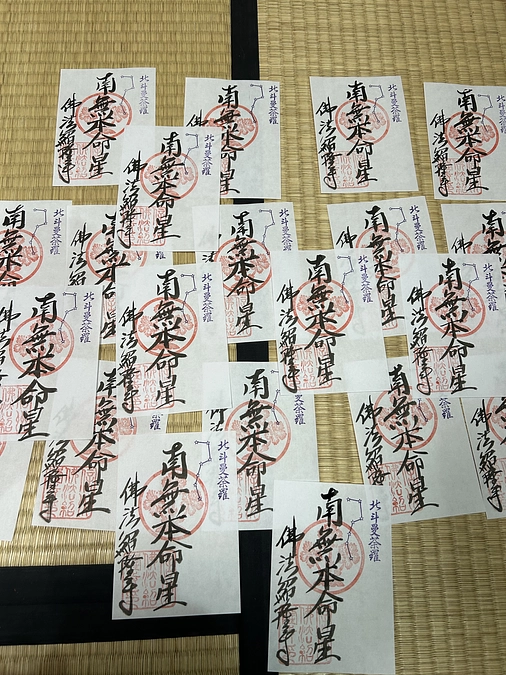 北斗曼荼羅
南無本命星
佛法紹隆寺
北斗曼荼羅
南無本命星
北斗曼荼羅
南無本命星
佛法紹隆寺
北斗曼荼羅
南無本命星
佛法紹隆寺
北斗曼荼羅
南無本命星
佛法紹隆寺
北斗曼荼羅
南無本命星
南無
佛法紹
北斗曼荼羅
南無本命星
北斗曼荼羅
南無
佛
南無
佛
北斗曼荼羅
南無本命星
佛法紹隆寺
北斗曼荼羅
南無本命星
佛法紹隆寺
北斗曼荼羅
南無本命星
佛法紹隆寺
北斗曼荼羅
南無本命星
佛法紹隆寺
荼羅
無本命星
紹隆寺
荼羅
南無本命星
南無本命星
佛法紹隆寺
佛法紹隆寺
北斗曼荼羅
南無本命星
佛法紹隆寺
北斗曼荼羅
南無本命星
佛法紹隆寺